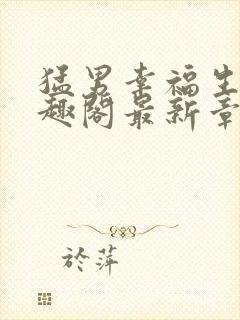 猛男幸福生
趣阁最新章
於萍